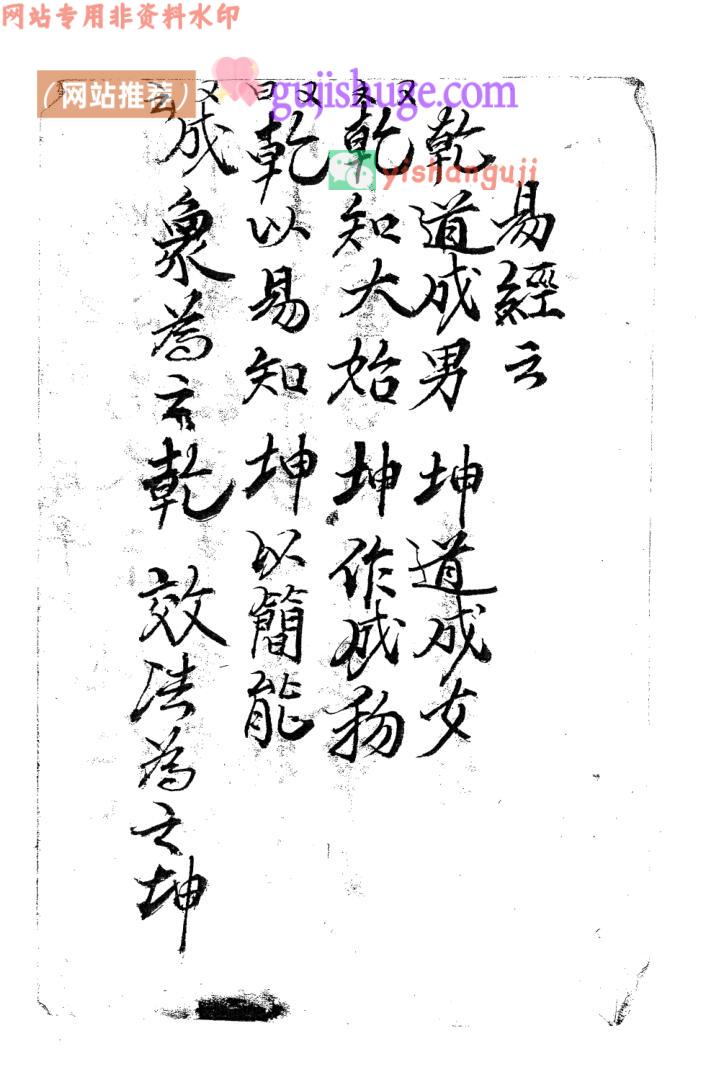 网站专用非资料水印
（网站推荐）
gujishuge.com
yishanguji
易經云
乾道成男 坤道成女
又
乾知大始 坤作成物
又曰
乾以易知 坤以簡能
又云
成象為之乾 效法為之坤